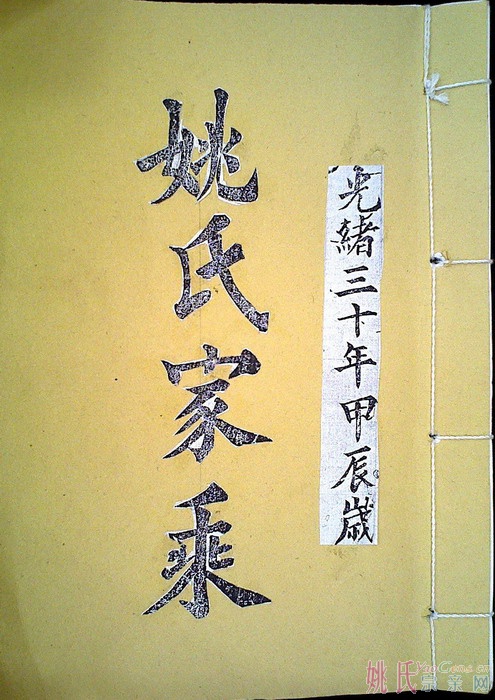 光緒三十年甲辰歲
姚氏家乘
姚氏宗亲网
YaoGens.cn